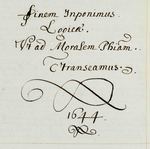 finem Inponimus
Logicæ.
Vt ad Moralem Phiam.
Transeamus.
1644.